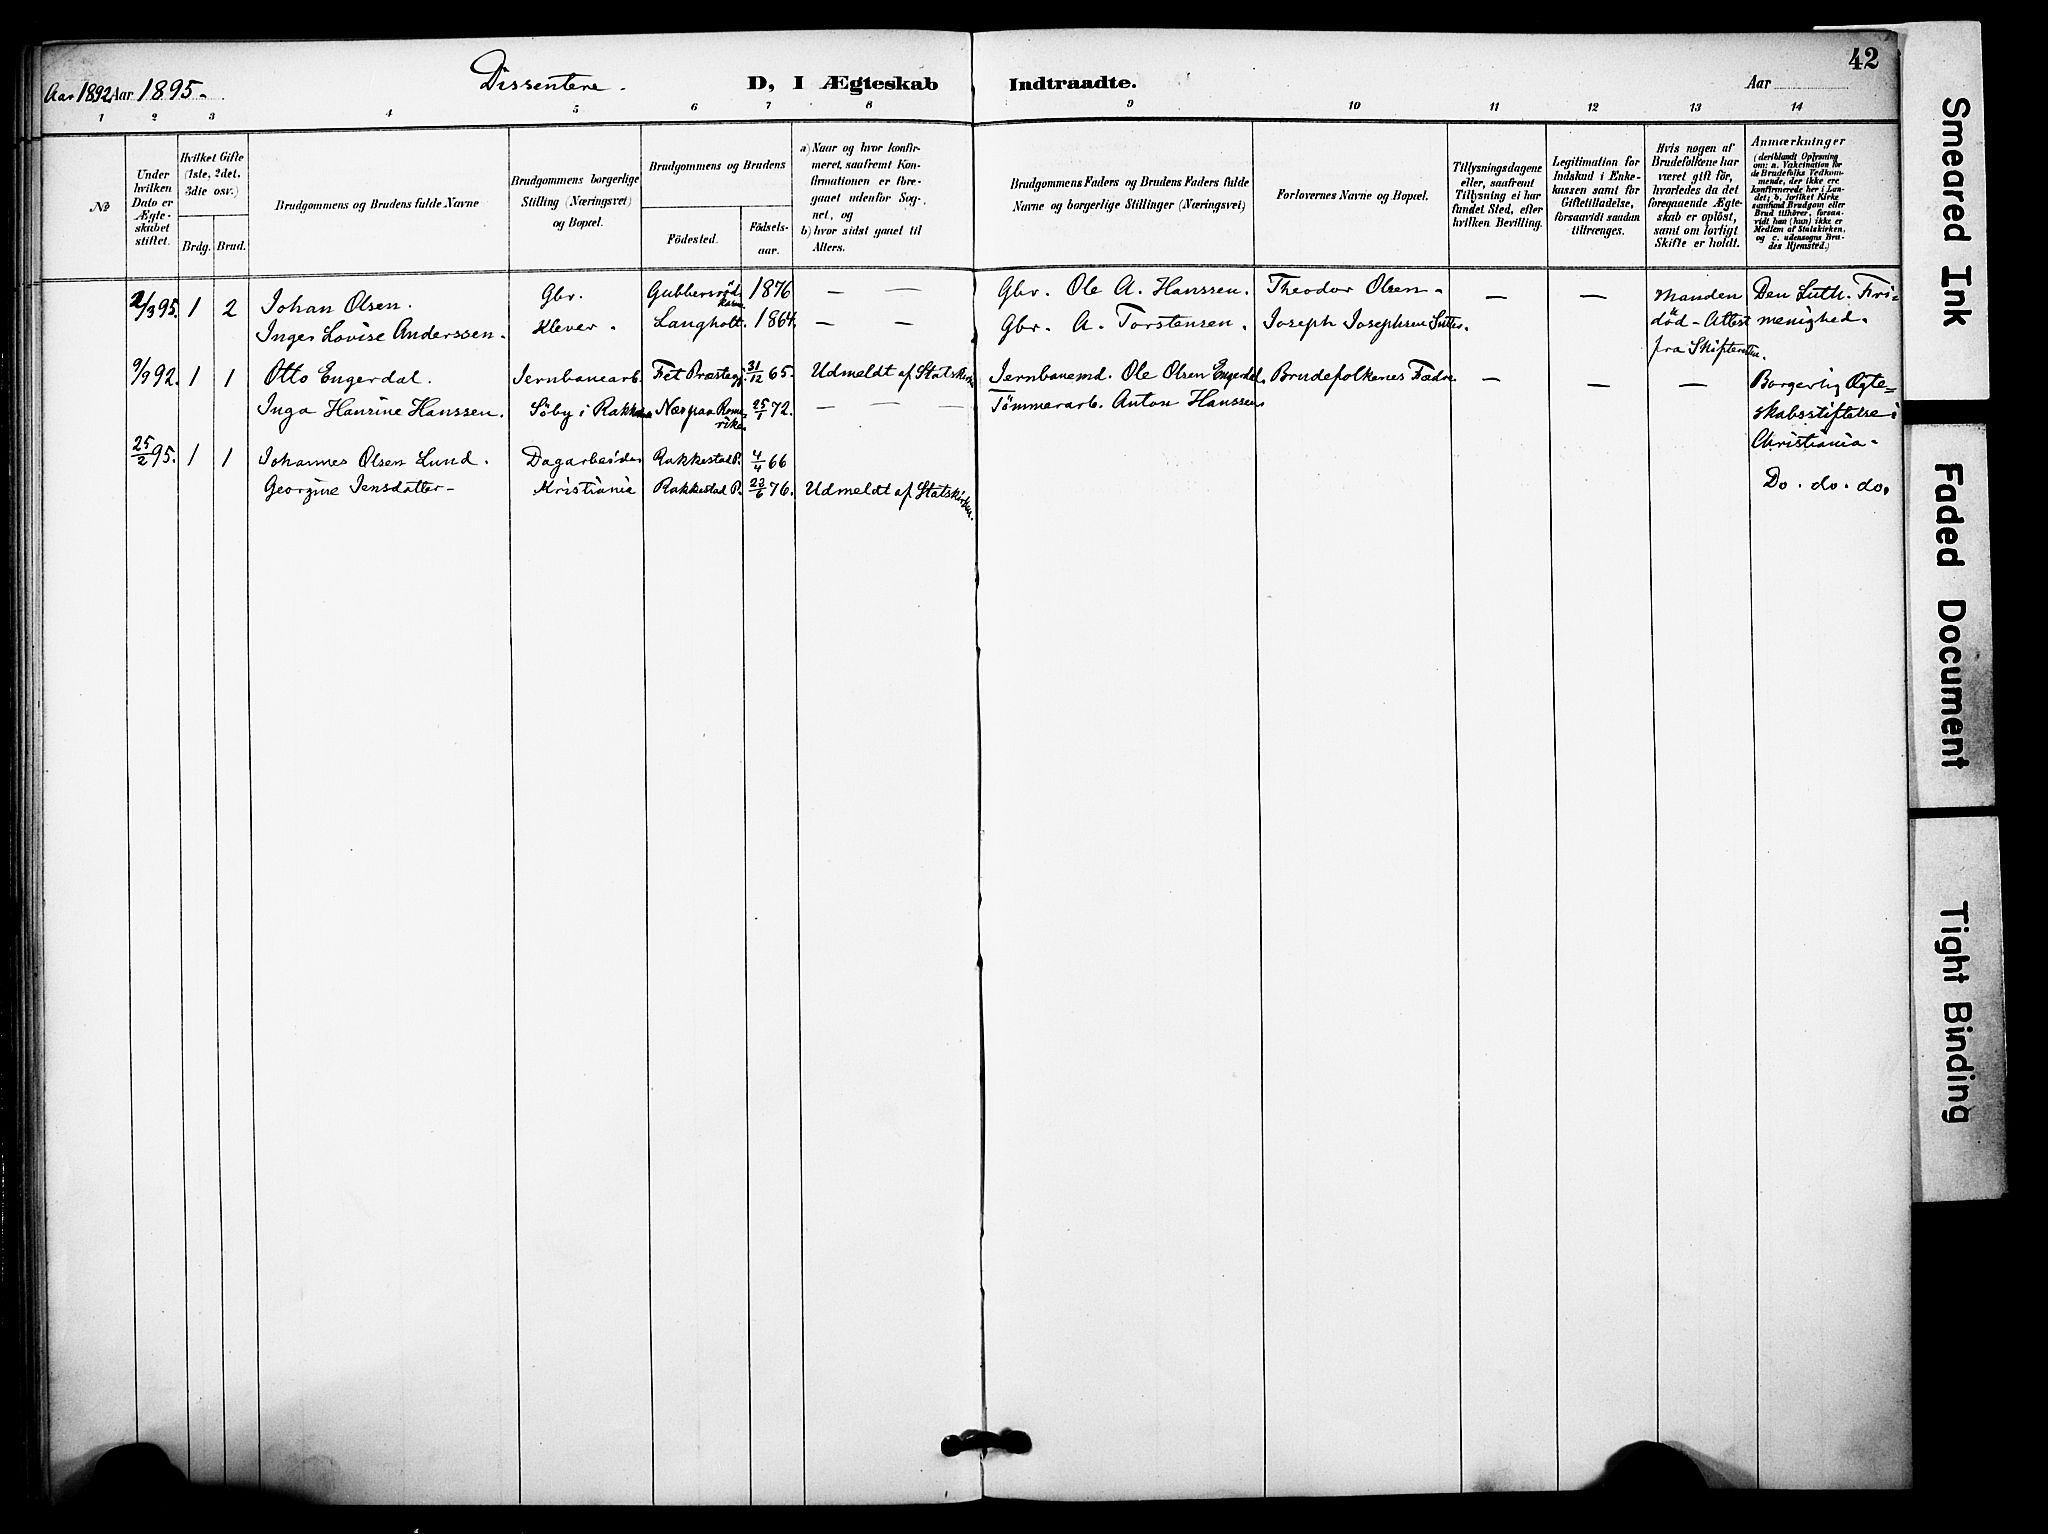 42
Aar 1892 Aar 1895.
Dissentere.
D, I Ægteskab Indtraadte.
Aar
1 2 3 4 5 6 7 8 9 10 11 12 13 14
No
Under hvilken Dato er Ægteskabet stiftet.
Hvilket Gifte (1ste, 2det, 3die osv.)
Brdg. Brud.
Brudgommens og Brudens fulde Navne
Brudgommens borgerlige Stilling (Næringsvei) og Bopæl.
Brudgommens og Brudens
Födested.
Födselsaar.
a) Naar og hvor konfirmeret, saafremt Konfirmationen er foregaaet udenfor Sognet, og
b) hvor sidst gaaet til Alters.
Brudgommens Faders og Brudens Faders fulde Navne og borgerlige Stillinger (Næringsvei)
Forlovernes Navne og Bopæl.
Tillysningsdagene eller, saafremt Tillysning ei har fundet Sted, efter hvilken Bevilling.
Legitimation for Indskud i Enkekassen samt for Giftetilladelse, forsaavidt saadan tiltrænges.
Hvis nogen af Brudefolkene har været gift för, hvorledes da det foregaaende Ægteskab er oplöst, samt om lovligt Skifte er holdt.
Anmærkninger
(deriblandt Oplysning om: a. Vakcination for de Brudefolks Vedkommende, der ikke ere konfirmerede her i Landet; b. hvilket Kirkesamfund Brudgom eller Brud tilhörer, forsaavidt han (hun) ikke er Medlem af Statskirken, og c. udensogns Brudes Hjemsted.)
2/3 95. 1 2 Johan Olsen. Gbr. 1876 — — Gbr. Ole A. Hanssen. Theodor Olsen - — — Manden Den Luth. Fri-
Inger Lovise Anderssen. Klever. Langholt. 1864. — — Gbr. A. Torstensen. Joseph Josephsen död - Attest menighed.
fra
9/9 92. 1 1 Otto Engerdal. Jernbanearb. Fet Præstegj. 31/12 65. Udmeldt af Statskirke Jernbanemd. Ole Olsen Engerdal. Brudefolkenes Fædre — — — Borgerlig Ægte=
Inga Hansine Hanssen. Söby i Nes paa Romerike. 25/1 72. — — — Tömmerarb. Anton Hanssen skabsstiftelse i
Christiania.
25/2 95. 1 1 Johannes Olsen Lund. Dagarbeider Rakkestad P. 4/4 66
Georgine Jensdatter - Kristiania Rakkestad P. 23/6 76. Udmeldt af Statskirken. Do. do. do.
Smeared Ink
Faded Document
Tight Binding